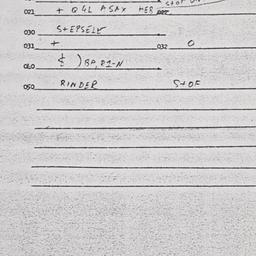 021 + Q4L ASAX HER 022
030 STEPSELV
031 + 032 O
040 & ) BP, P1-N
050 RINDER STOF